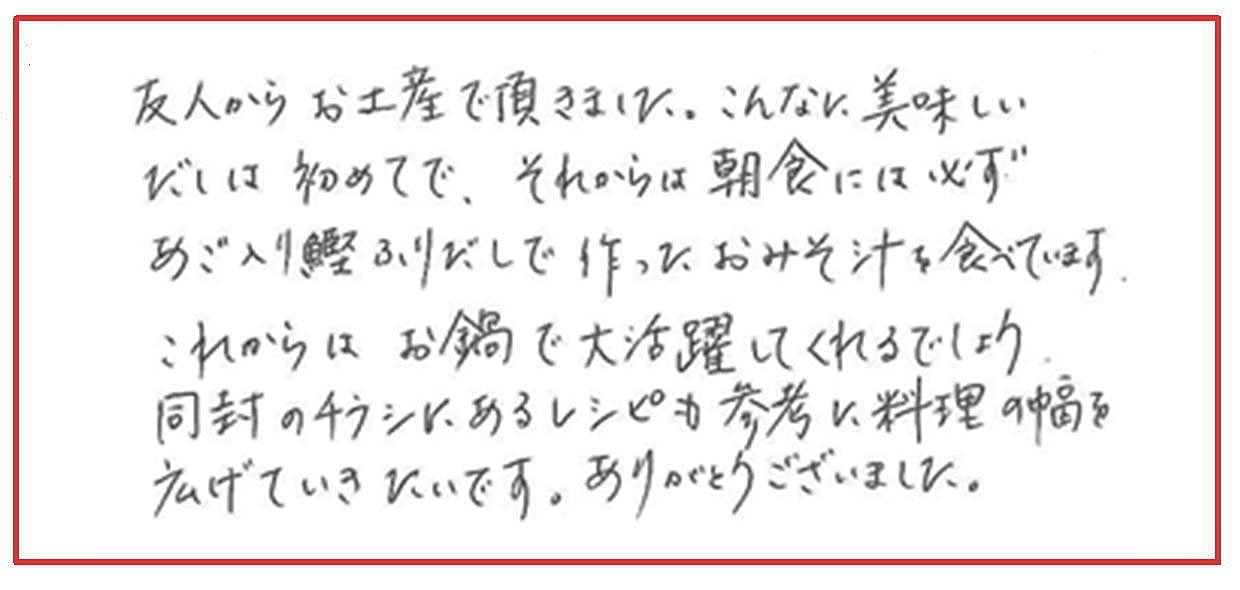 友人からお土産で頂きました。こんなに美味しい
だしは初めてで、それからは朝食には必ず
あご入り鰹ふりだしで作ったおみそ汁を食べています.
これからはお鍋で大活躍してくれるでしょう.
同封のチラシにあるレシピも参考に料理の幅を
広げていきたいです。ありがとうございました。